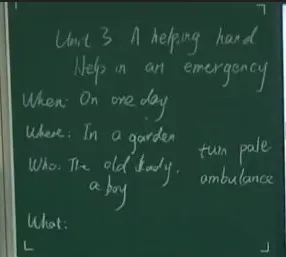 Unit 3 A helping hand
Help in an emergency
When: On one day
Where: In a garden
Who: The old lady.
a boy
turn pale
ambulance
What: